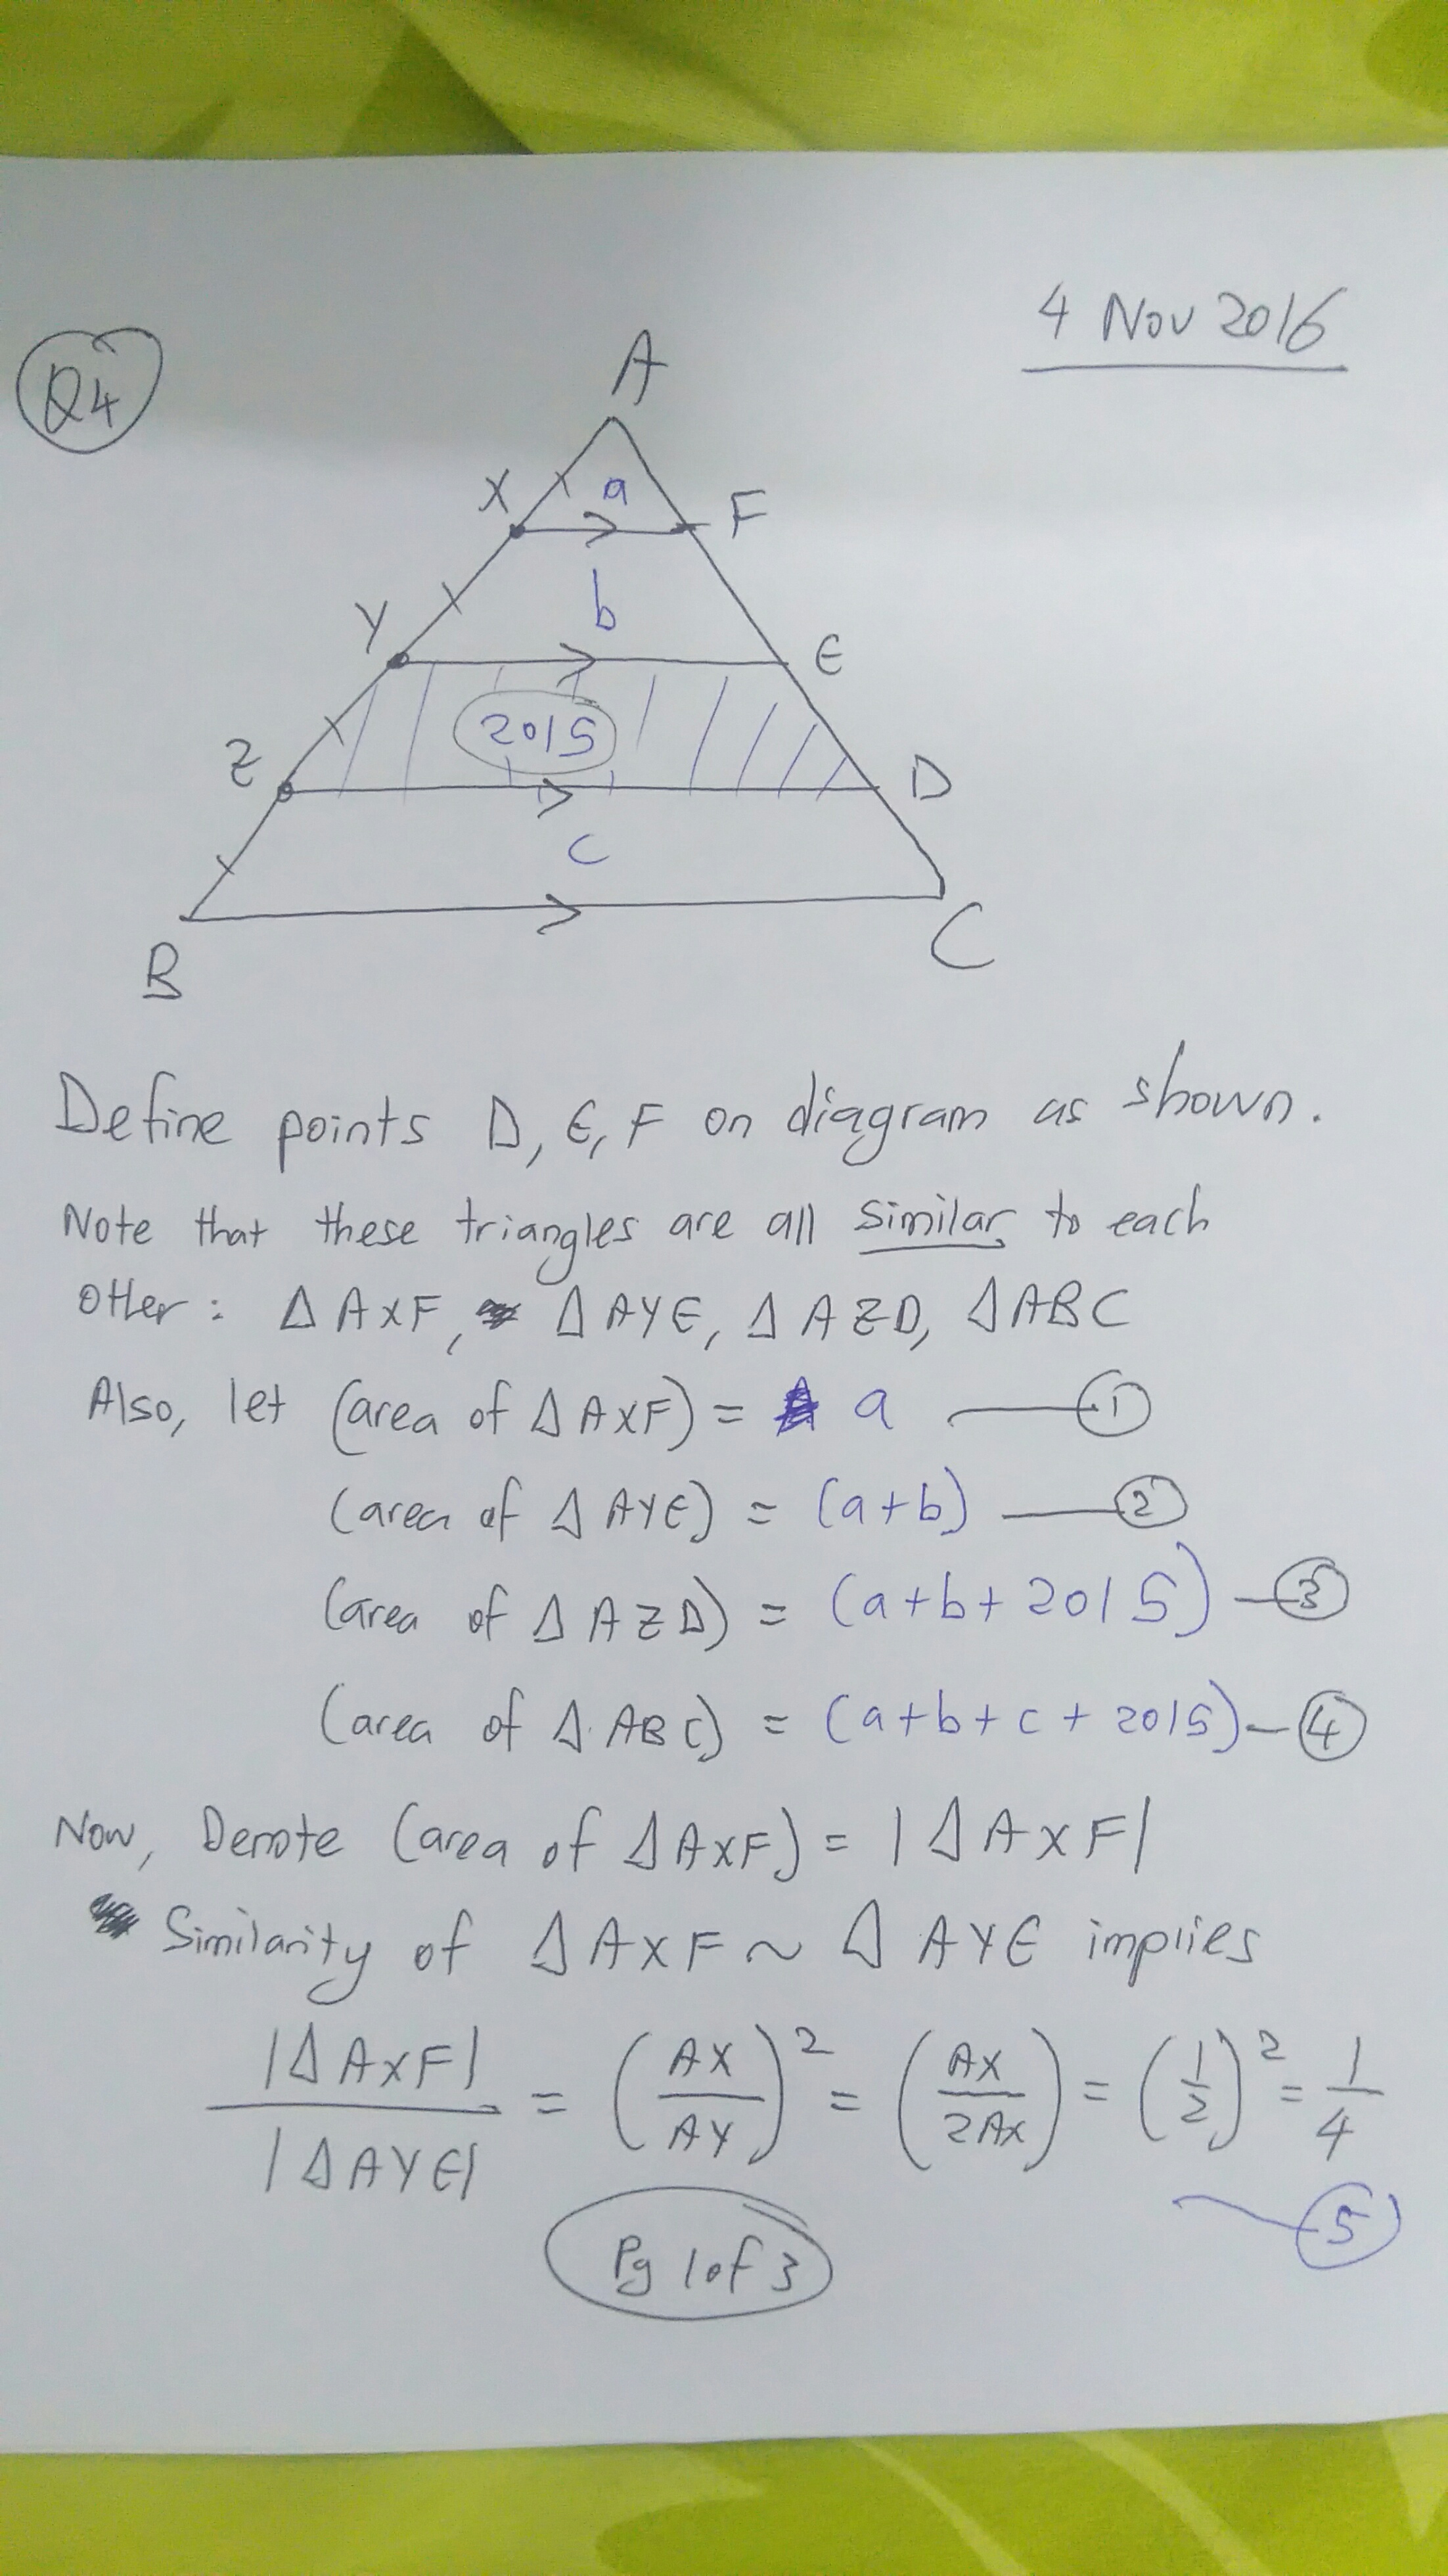 4 Nov 2016
Q4
A
X a F
b
Y E
2015
Z D
c
B C
Define points D, E, F on diagram as shown.
Note that these triangles are all similar to each
other : Δ AXF, Δ AYE, Δ AZD, Δ ABC
Also, let (area of Δ AXF) = a — ①
(area of Δ AYE) = (a+b) — ②
(area of Δ AZD) = (a+b+2015) — ③
(area of Δ ABC) = (a+b+c+2015) — ④
Now, Denote (area of Δ AXF) = |Δ AXF|
Similarity of Δ AXF ~ Δ AYE implies
|Δ AXF| / |Δ AYE| = (AX/AY)² = (AX/2AX) = (1/2)² = 1/4
— ⑤
Pg 1 of 3